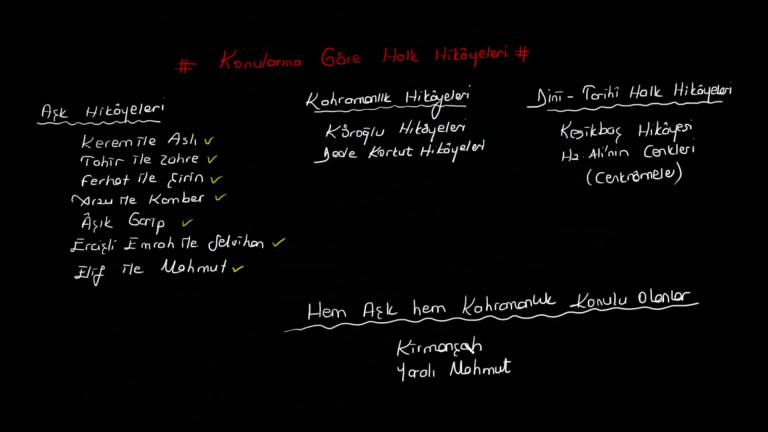 # Konularına Göre Halk Hikâyeleri #
Aşk Hikâyeleri
Kerem ile Aslı
Tahir ile Zühre
Ferhat ile Şirin
Arzu ile Kamber
Âşık Garip
Ercişli Emrah ile Selvihan
Elif ile Mahmut
Kahramanlık Hikâyeleri
Köroğlu Hikâyeleri
Dede Korkut Hikâyeleri
Dinî - Tarihî Halk Hikâyeleri
Kesikbaş Hikâyesi
Hz. Ali'nin Cenkleri
(Cenknâmeler)
Hem Aşk hem Kahramanlık Konulu Olanlar
Kirmanşah
Yaralı Mahmut